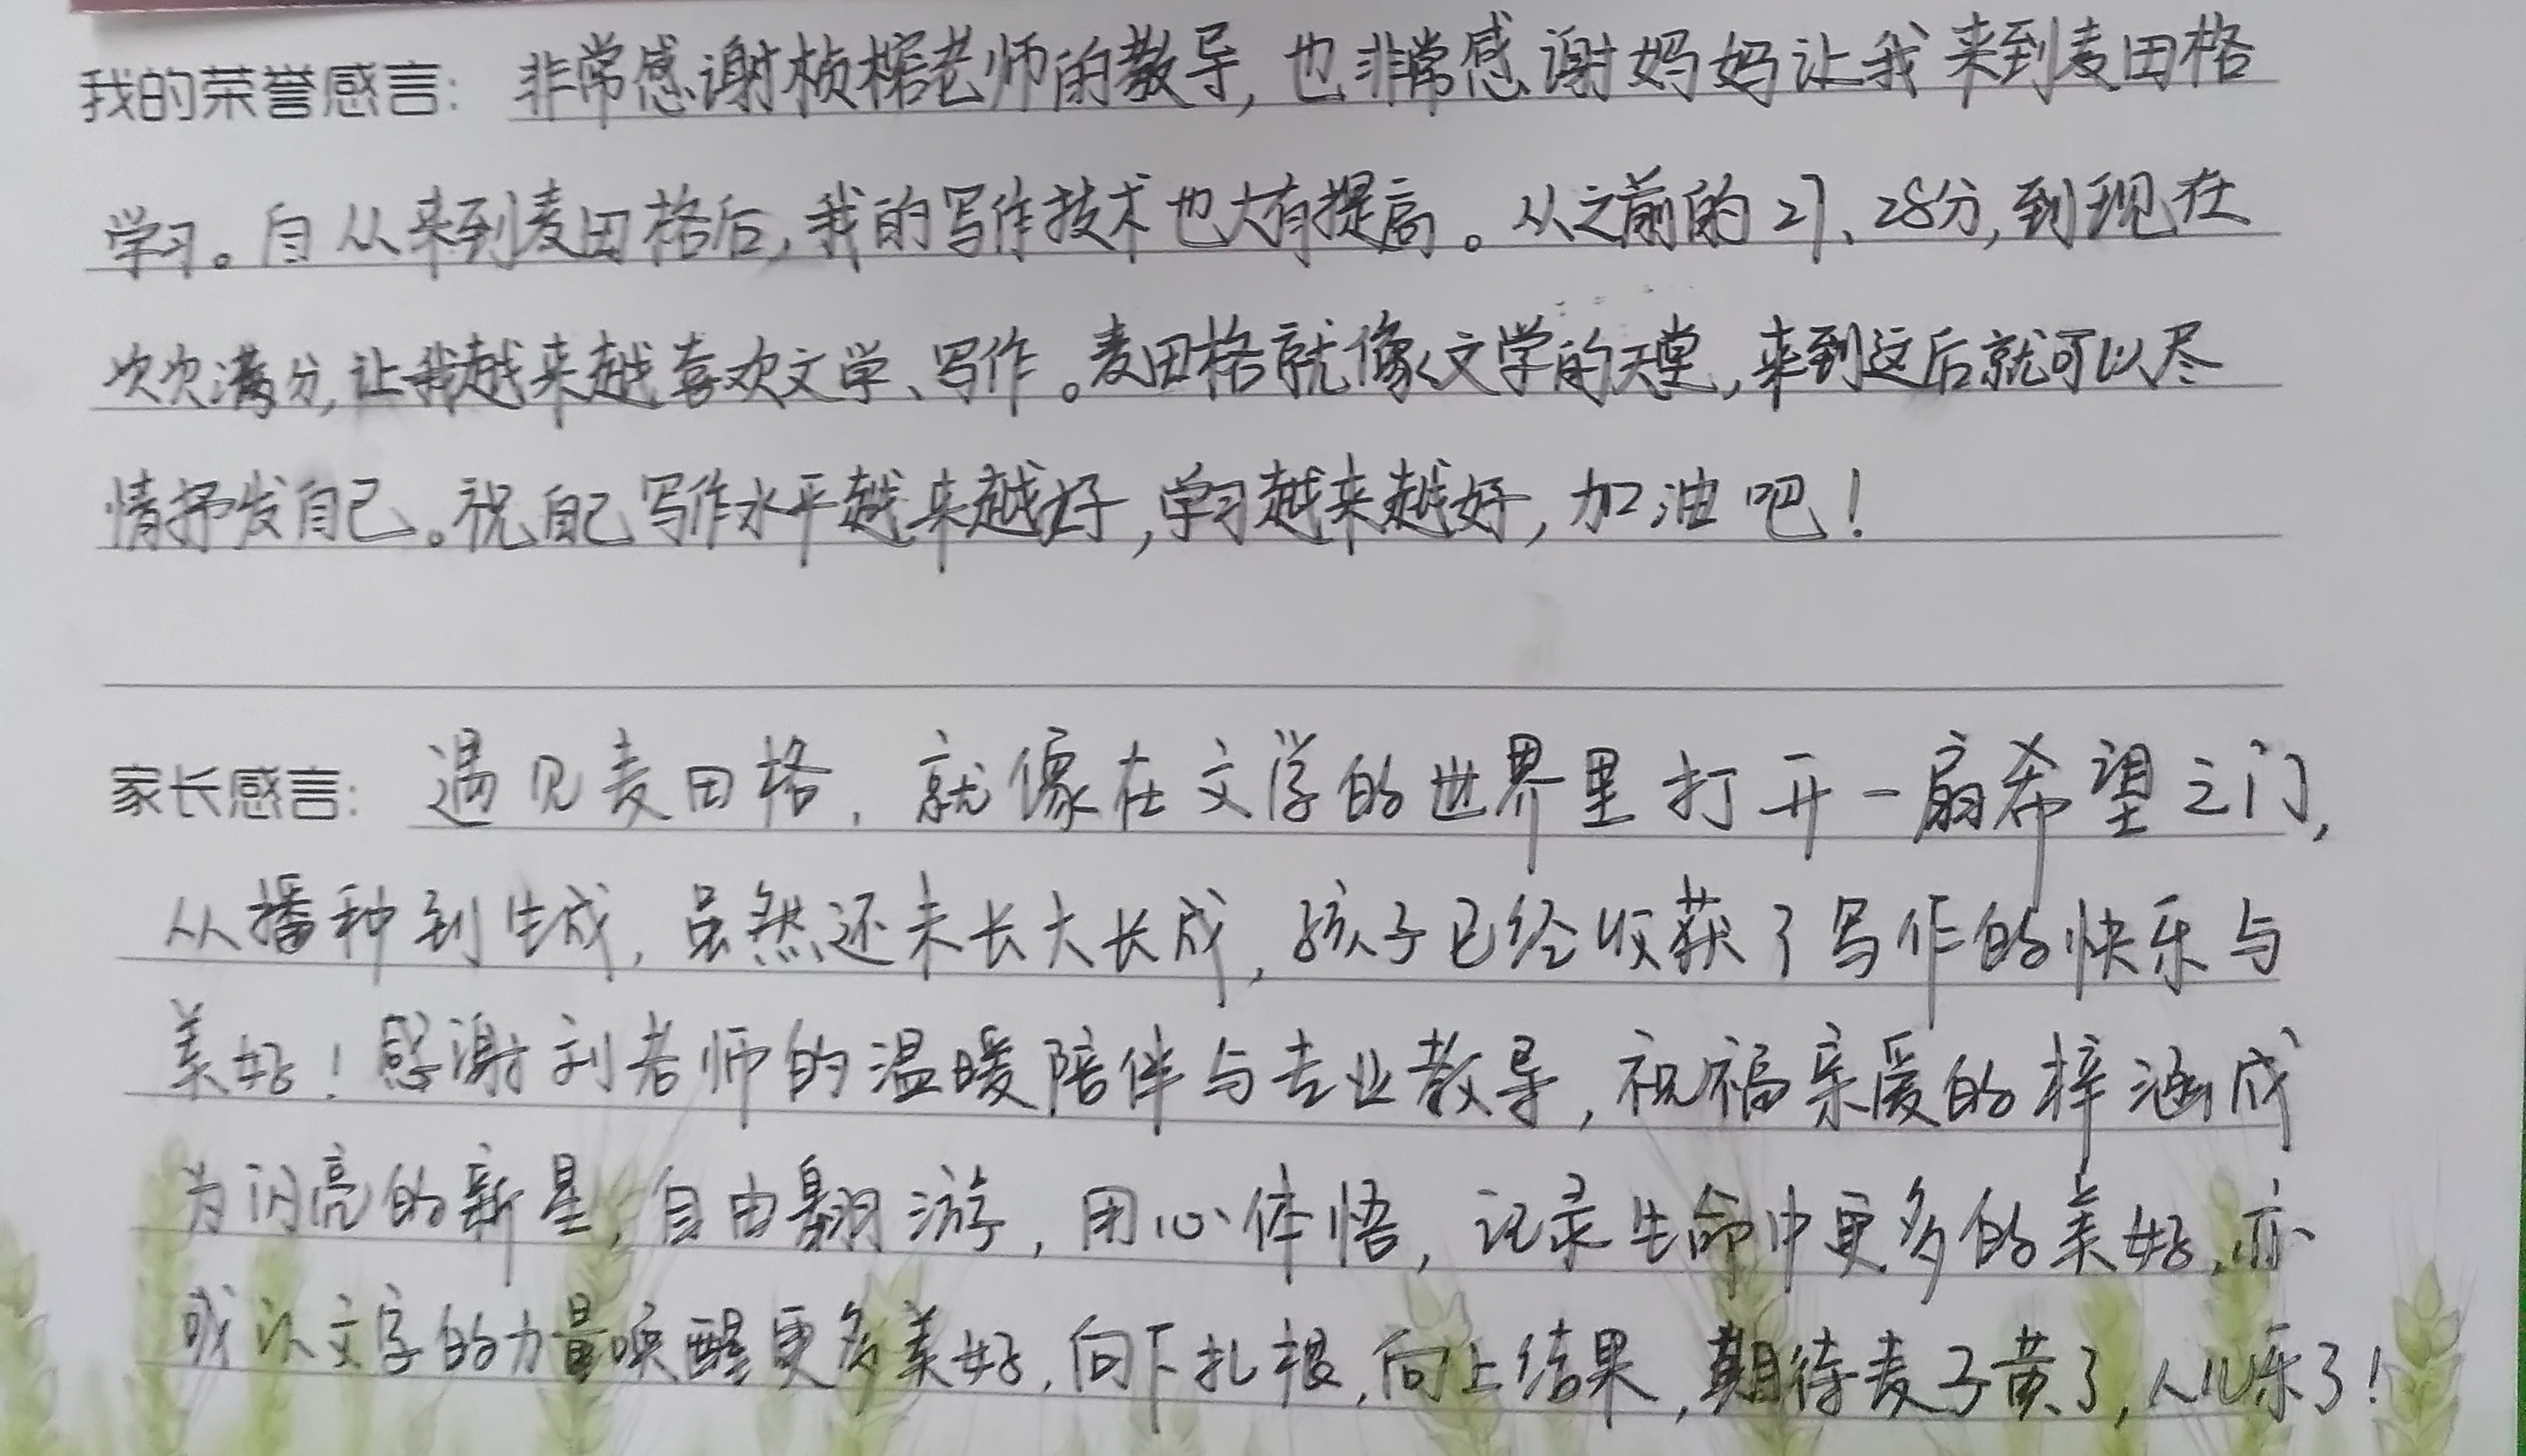 我的荣誉感言: 非常感谢桢榕老师的教导,也非常感谢妈妈让我来到麦田格
学习。自从来到麦田格后,我的写作技术也大有提高。从之前的27、28分,到现在
次次满分,让我越来越喜欢文学、写作。麦田格就像文学的天堂,来到这后就可以尽
情抒发自己。祝自己写作水平越来越好,学习越来越好,加油吧!
家长感言: 遇见麦田格,就像在文学的世界里打开一扇希望之门,
从播种到生成,虽然还未长大长成,孩子已经收获了写作的快乐与
美好!感谢刘老师的温暖陪伴与专业教导,祝福亲爱的梓涵成
为闪亮的新星,自由翱游,用心体悟,记录生命中更多的美好,亦
或以文字的力量唤醒更多美好,向下扎根,向上结果,期待麦子黄了,人儿乐了!